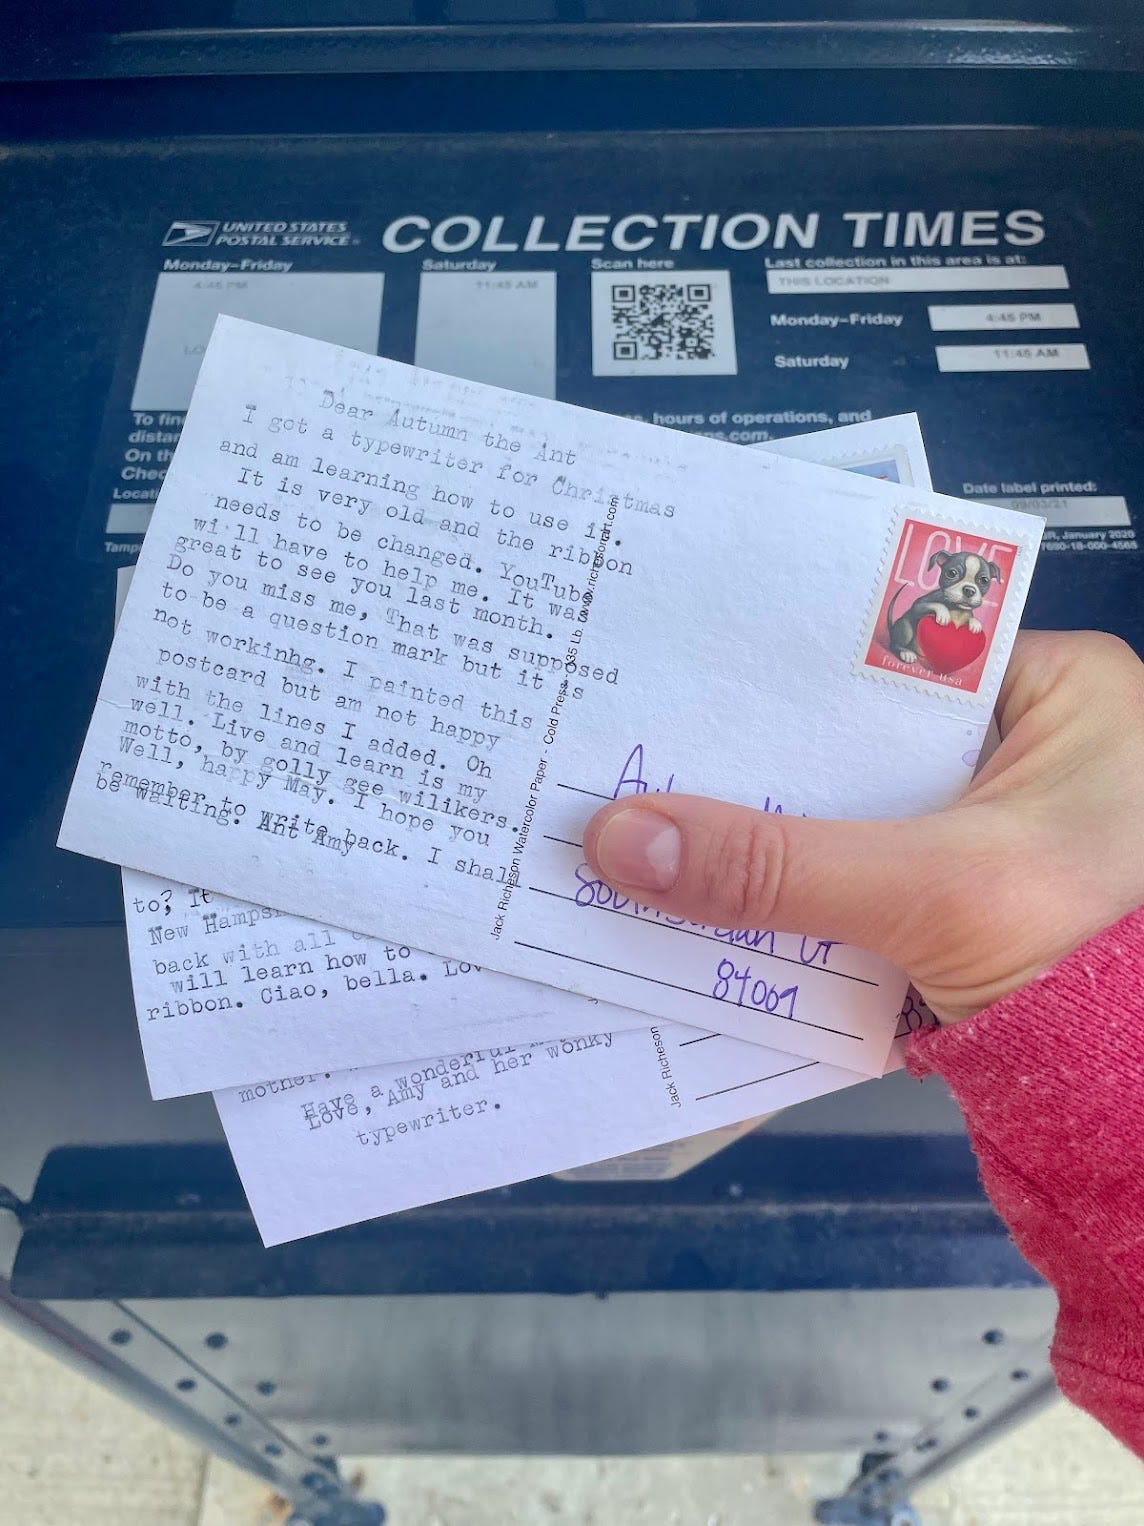 UNITED STATES
POSTAL SERVICE
COLLECTION TIMES
Monday–Friday
4:45 PM
Saturday
11:45 AM
Scan here
Last collection in this area is at:
THIS LOCATION
Monday–Friday
4:45 PM
Saturday
11:45 AM
To fin
hours of operations, and
distan
.com.
On th
Chec
Locat
Date label printed:
09/03/21
January 2020
Dear Autumn the Ant
I got a typewriter for Christmas
and am learning how to use it.
It is very old and the ribbon
needs to be changed. YouTube
wi'll have to help me. It was
great to see you last month.
Do you miss me, That was supposed
to be a question mark but it is
not workinhg. I painted this
postcard but am not happy
with the lines I added. Oh
well. Live and learn is my
motto, by golly gee wilikers.
Well, happy May. I hope you
remember to write back. I shall
be waiting. Ant Amy
Jack Richeson Watercolor Paper - Cold Press
LOVE
forever usa
UT
84009
to? It
New Hampsh
back with all
will learn how to
ribbon. Ciao, bella. Lov
mother.
Have a wonderful
Love, Amy and her wonky
typewriter.
Jack Richeson